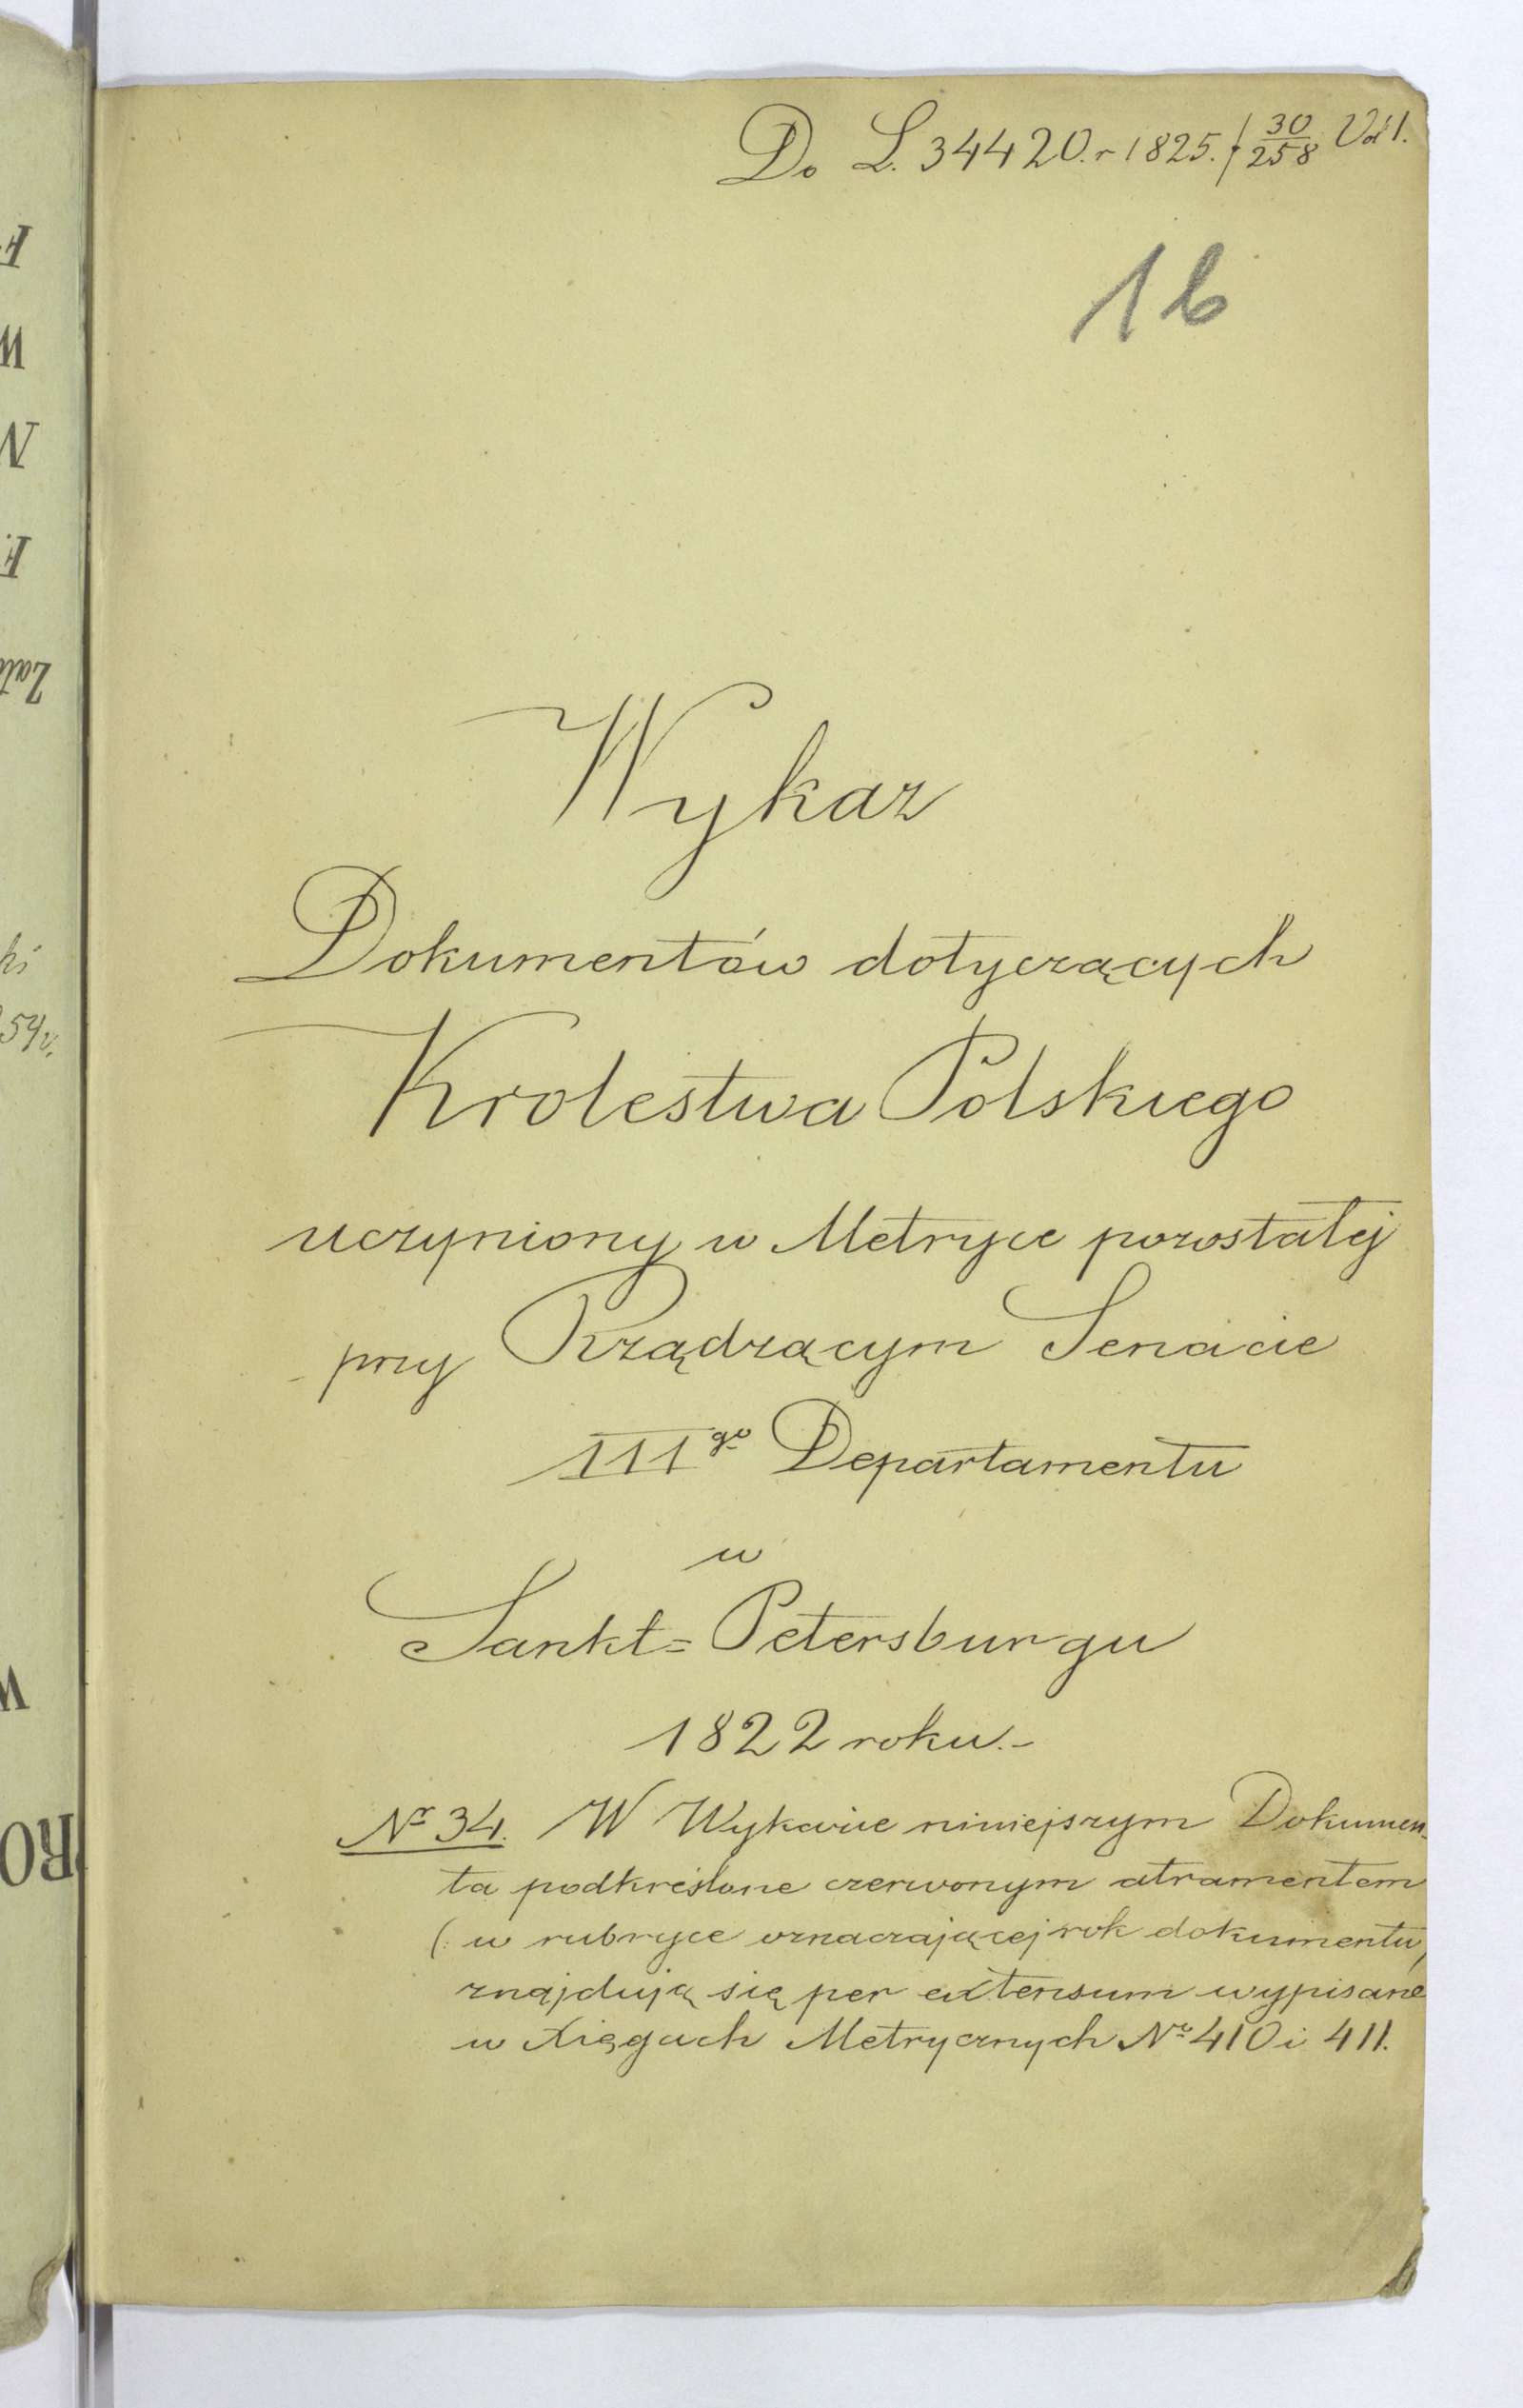 Do L. 34420. r 1825. 30/258 Vol 1.
16
Wykaz
Dokumentów dotyczących
Krolestwa Polskiego
uczyniony w Metryce pozostałej
przy Rządzącym Senacie
III go Departamentu
w
Sankt= Petersburgu
1822 roku.-
Nr 34. W Wykazie niniejszym Dokumen-
ta podkreślone czerwonym atramentem
(: w rubryce oznaczającej rok dokumentu,
znajdują się per extensum wypisane
w Xięgach Metrycznych No 410 i 411.